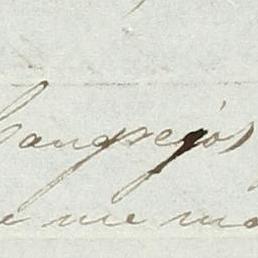 Cangrejos
me ma